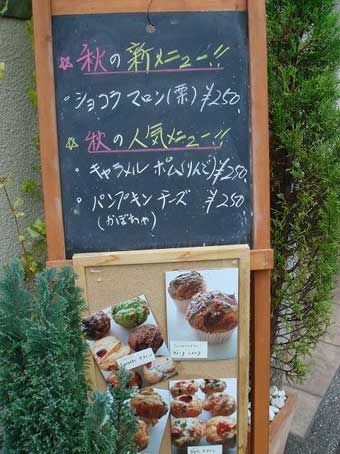 ☆秋の新メニュー!!
・ショコラマロン(栗)¥250
☆秋の人気メニュー!!
・キャラメルポム(りんご)¥250
・パンプキンチーズ ¥250
(かぼちゃ)